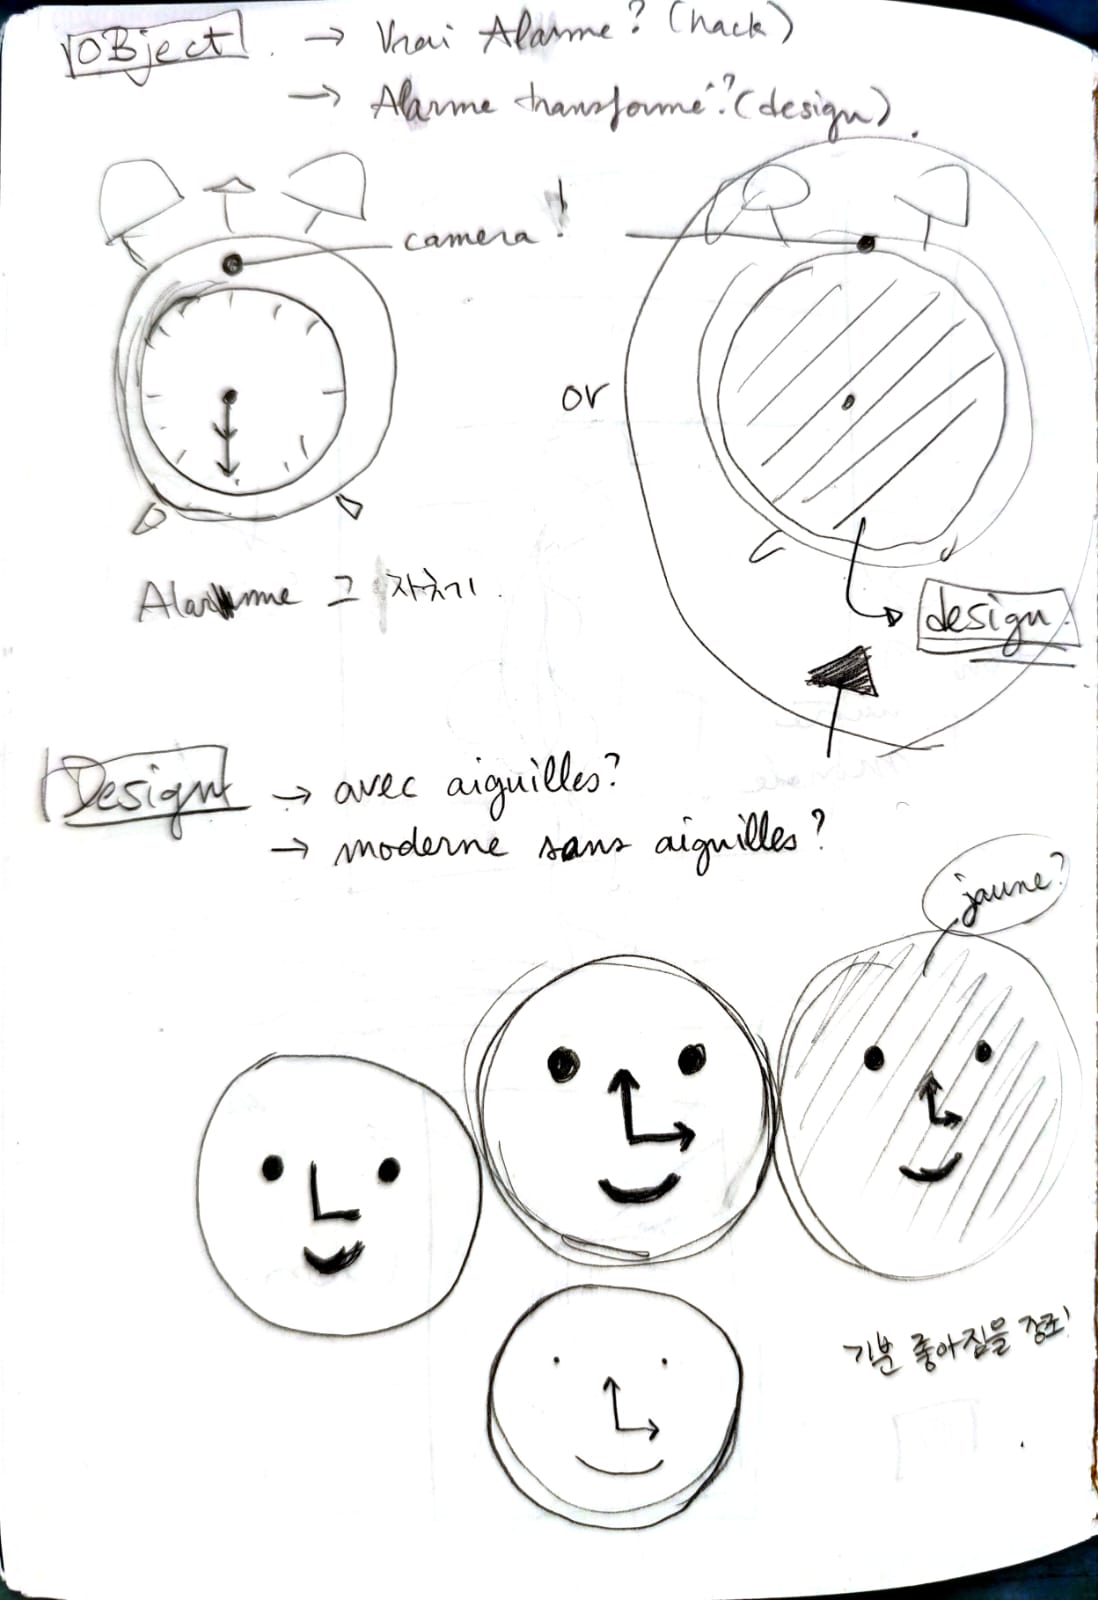 OBject → Vrai Alarme? (hack)
→ Alarme transformé? (design)
camera!
or
Alarme 그 자체
design
Design → avec aiguilles?
→ moderne sans aiguilles?
jaune?
기분 좋아짐을 강조!